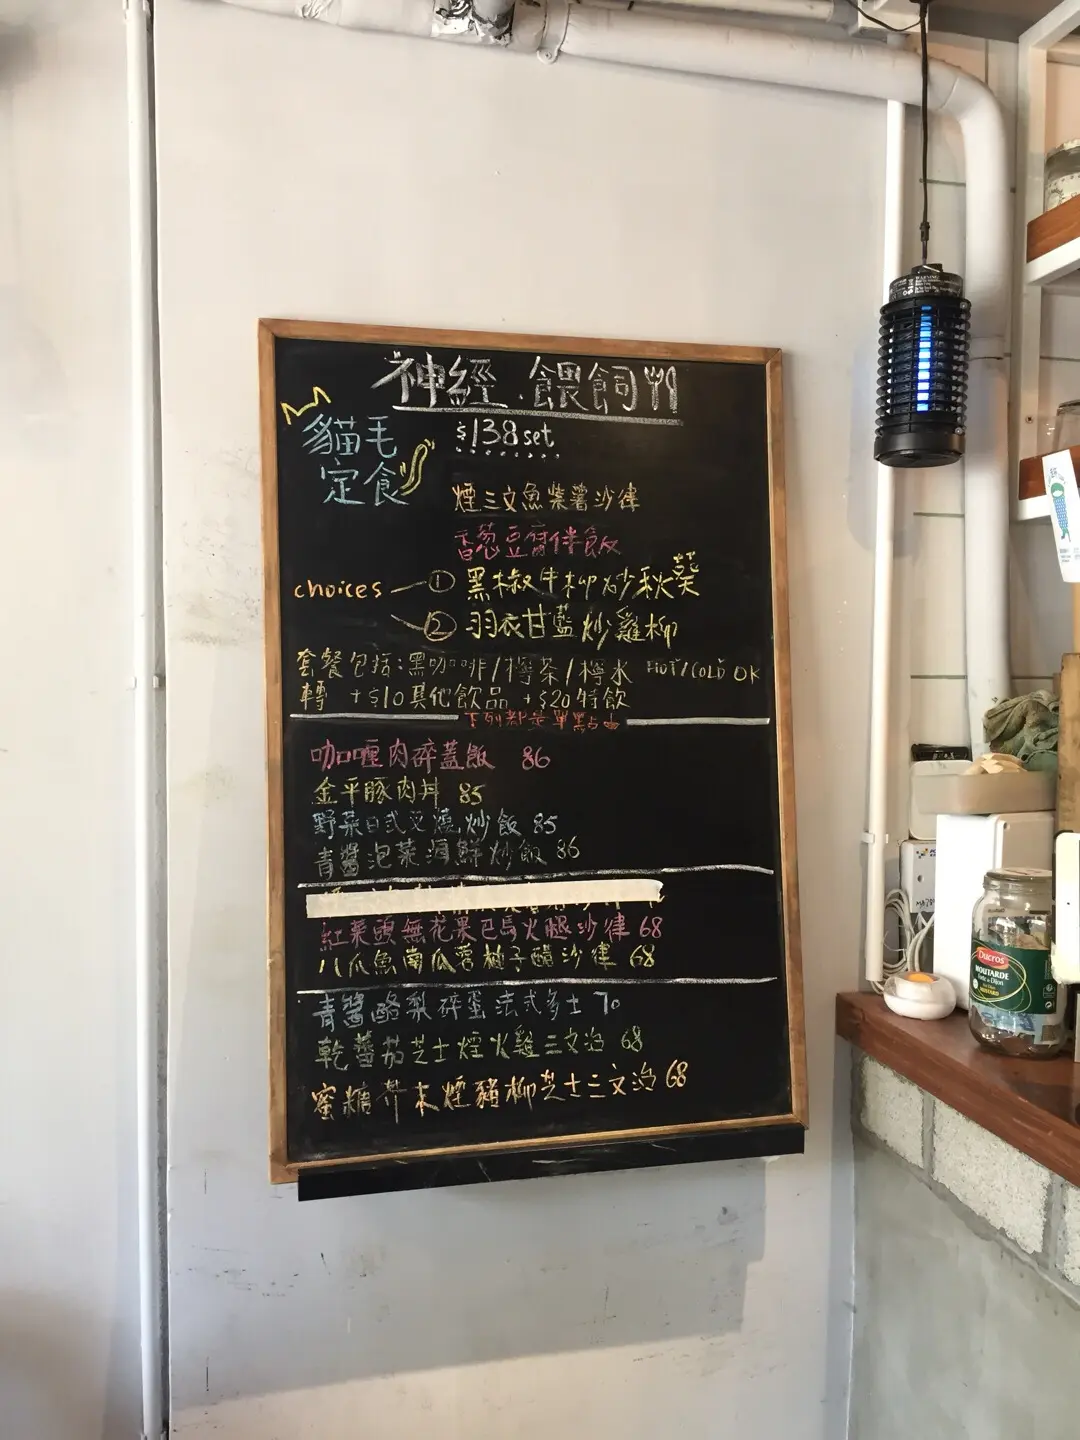 神經．餵飼
$138 set
貓毛
定食
煙三文魚紫薯沙律
香蔥豆腐伴飯
choices
① 黑椒牛柳炒秋葵
② 羽衣甘藍炒雞柳
套餐包括:黑咖啡/檸茶/檸水 HOT/COLD OK
轉 +$10其他飲品 +$20特飲
下列都是單點由
咖喱肉碎蓋飯 86
金平豚肉丼 85
野菜日式叉燒炒飯 85
青醬泡菜海鮮炒飯 86
紅菜頭無花果巴馬火腿沙律 68
八爪魚南瓜薯柚子醋沙律 68
青醬酪梨碎蛋法式多士 70
乾蕃茄芝士煙火雞三文治 68
蜜糖芥末煙豬柳芝士三文治 68
Ducros
MOUTARDE